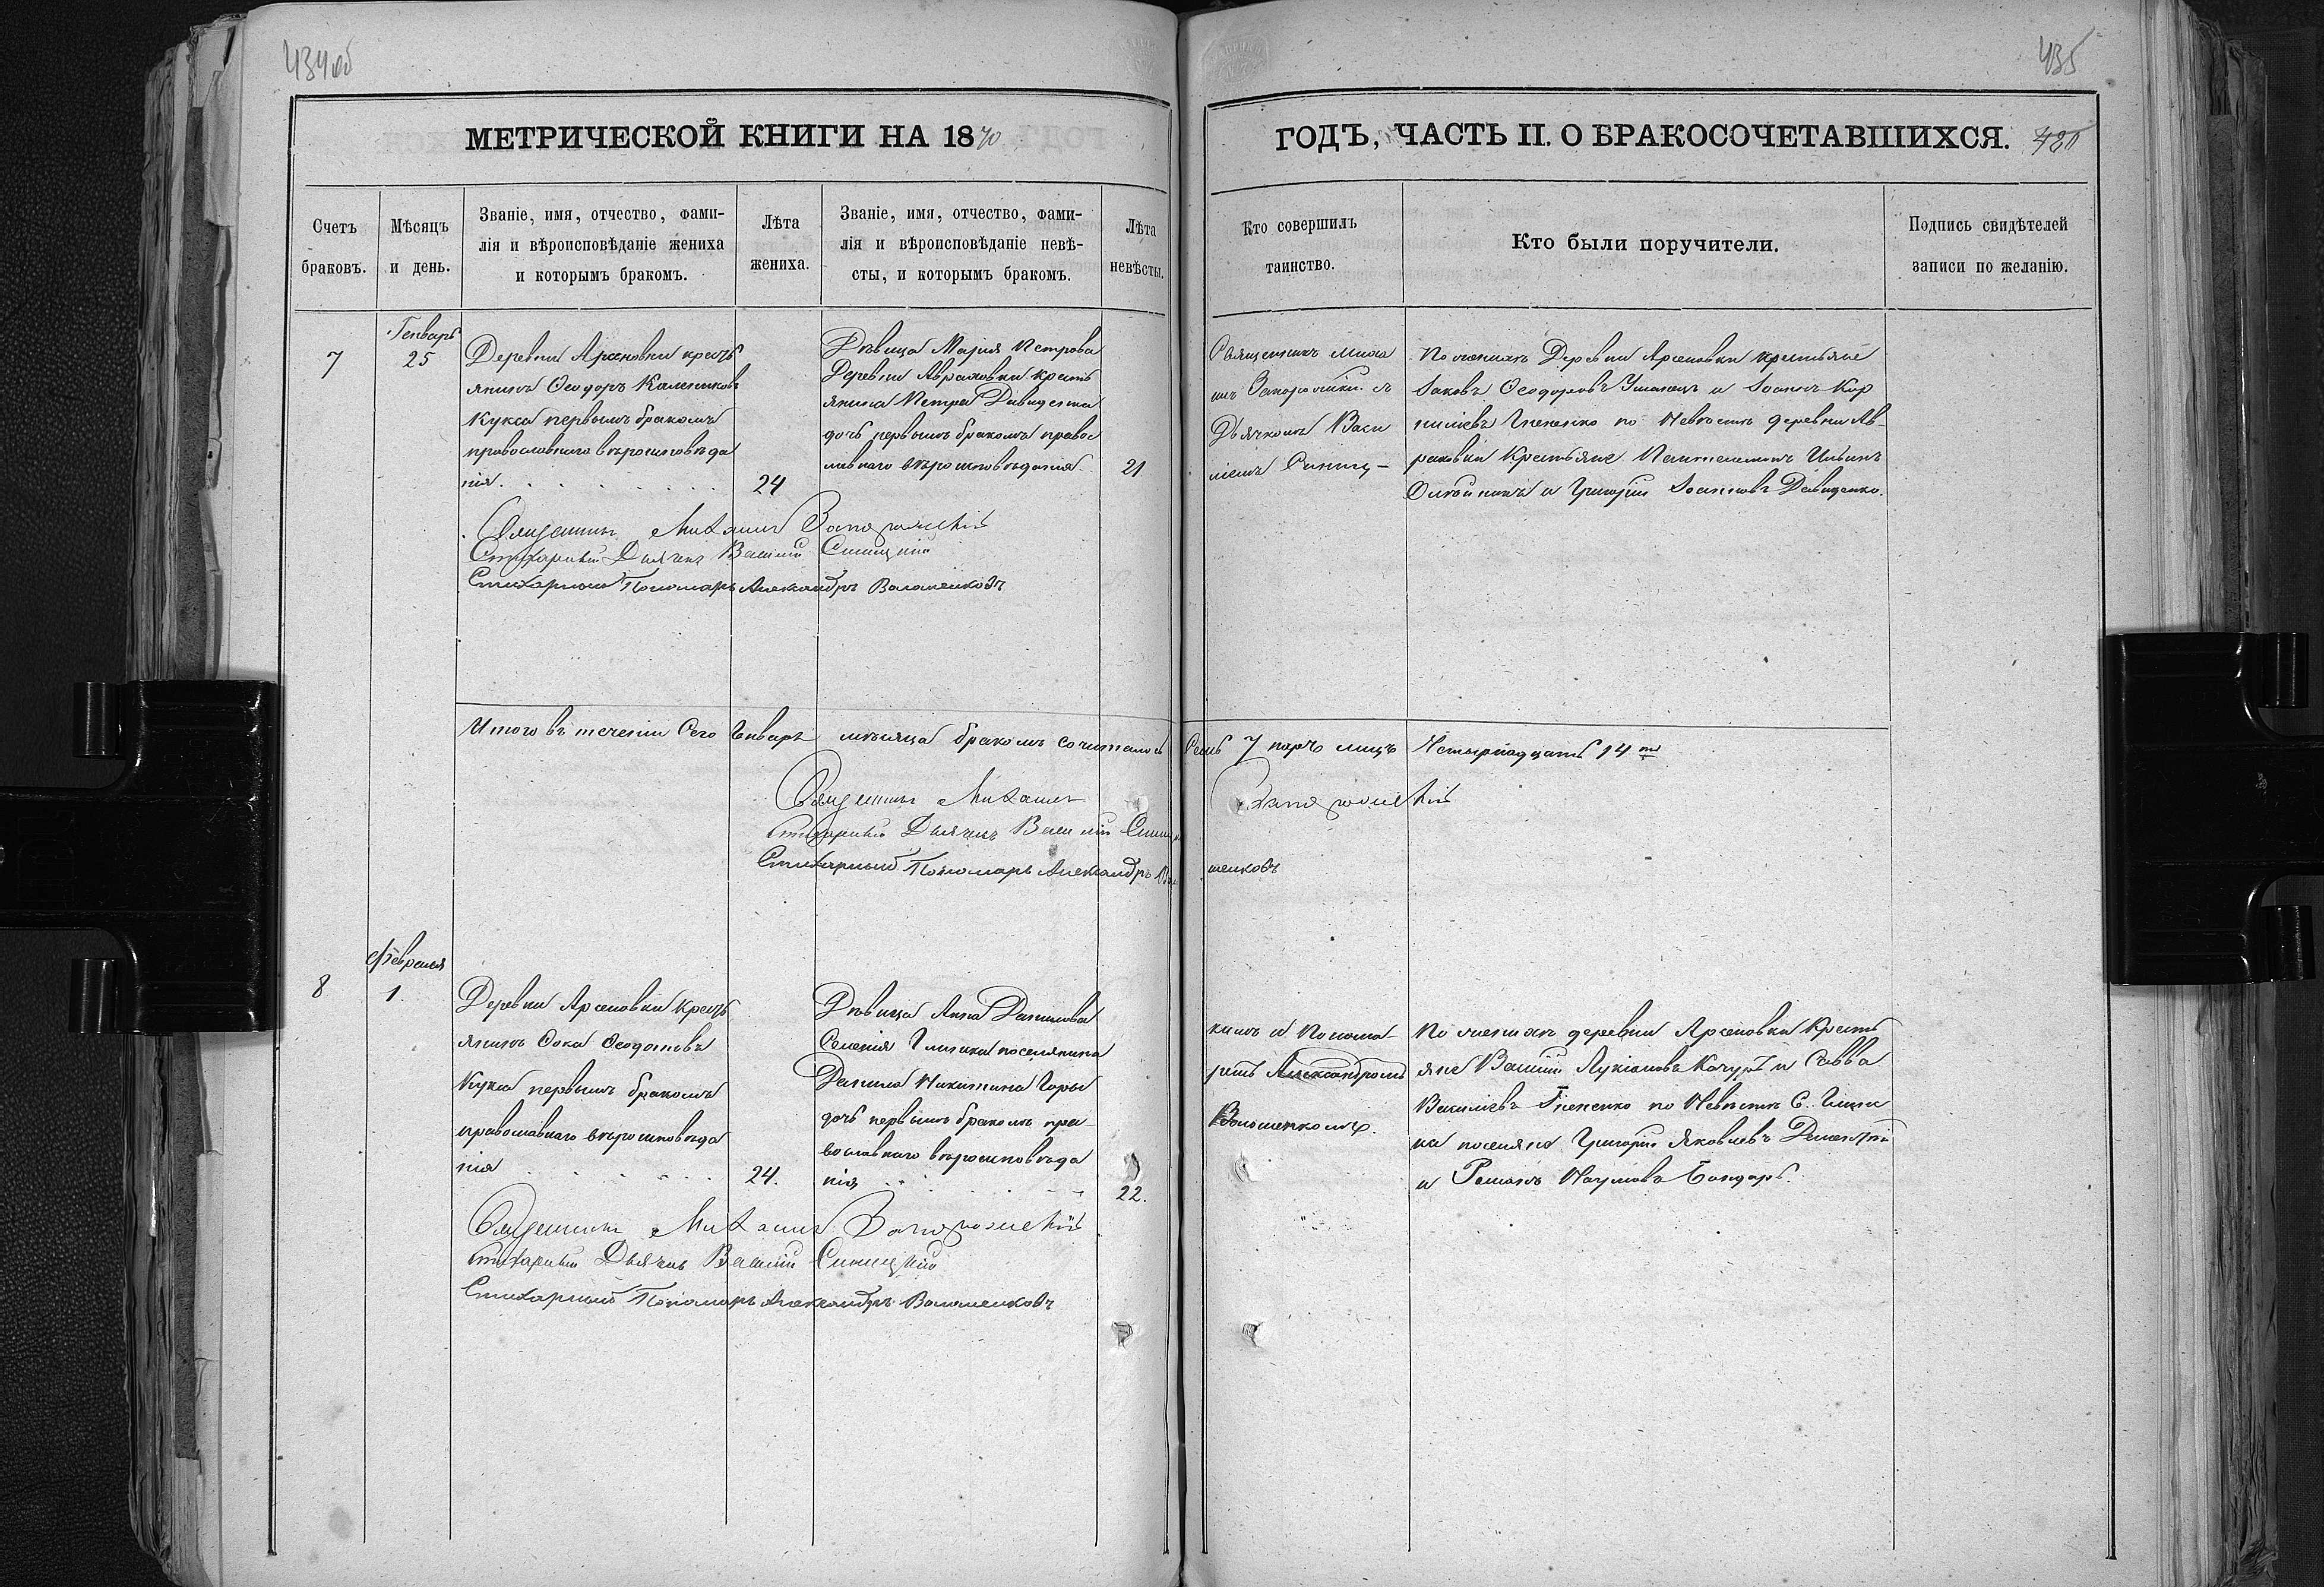 434об
435
МЕТРИЧЕСКОЙ КНИГИ НА 1870
ГОДЪ, ЧАСТЬ II. О БРАКОСОЧЕТАВШИХСЯ.
Счетъ
браковъ.
Мѣсяцъ
и день.
Званіе, имя, отчество, фами-
лія и вѣроисповѣданіе жениха
и которымъ бракомъ.
Лѣта
жениха.
Званіе, имя, отчество, фами-
лія и вѣроисповѣданіе невѣ-
сты, и которымъ бракомъ.
Лѣта
невѣсты.
Кто совершилъ
таинство.
Кто были поручители.
Подпись свидѣтелей
записи по желанію.
7
Генварь
25
Деревни Арсеновки кресть
янинъ Ѳеодоръ
Кукса первымъ бракомъ
православнаго вѣроисповѣда
нія
24
Дѣвица Марія Петрова
Деревни Аврамовки кресть
янина Петра Давиденка
дочь первымъ бракомъ правос
лавнаго вѣроисповѣданія
21
Священникъ Миха
илъ Запорожскій съ
Дьячкомъ Васи
ліемъ Синиц-
По женихѣ Деревни Арсеновки крестьяне
Іаковъ Ѳеодоровъ и Іоаннъ Кор
ниліевъ по Невѣстѣ деревни Ав-
рамовки Крестьяне Пантелеимонъ Ильинъ
Олейникъ и Григорій Іоанновъ Давиденко.
Священникъ Михаилъ Запорожскій
Стихарный Дьячекъ Василій Синицкій
Стихарный Пономарь Александръ Волошенковъ
Итого въ теченіи Сего Генваря мѣсяца бракомъ сочиталось Семь 7 паръ лицъ Четырнадцать 14
Священникъ Михаилъ Запорожскій
Стихарный Дьячекъ Василій Синиц
Стихарный Пономарь Александръ Воло шенковъ
8
Февраля
1.
Деревни Арсеновки кресть
янинъ Сока Ѳеодотовъ
Кукса первымъ бракомъ
православнаго вѣроисповѣда
нія
24.
Дѣвица Анна Данилова
Селенія Глинска поселянина
Данила Никитина Горы
дочь первымъ бракомъ пра-
вославнаго вѣроисповѣда
нія
22.
кимъ и Понома-
ремъ Александромъ
Волошенкомъ.
По женихѣ деревни Арсеновки Кресть
яне Василій Лукіановъ Качуръ и Савва
Василіевъ по Невѣстѣ С. Глинс
ка поселяне Григорій Яковлевъ
и Романъ Наумовъ Бондарь.
Священникъ Михаилъ Запорожскій
Стихарный Дьячекъ Василій Синицкій
Стихарный Пономарь Александръ Волошенковъ